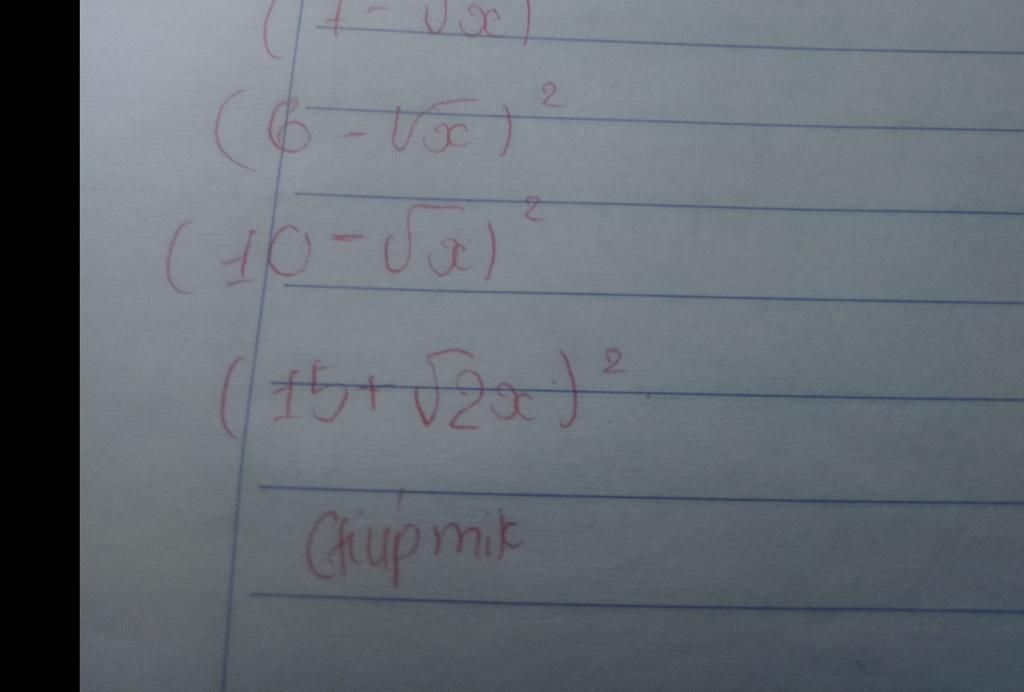 (7 - √x)
(6 - √x)²
(10 - √x)²
(15 + √2x)²
Giúp mik